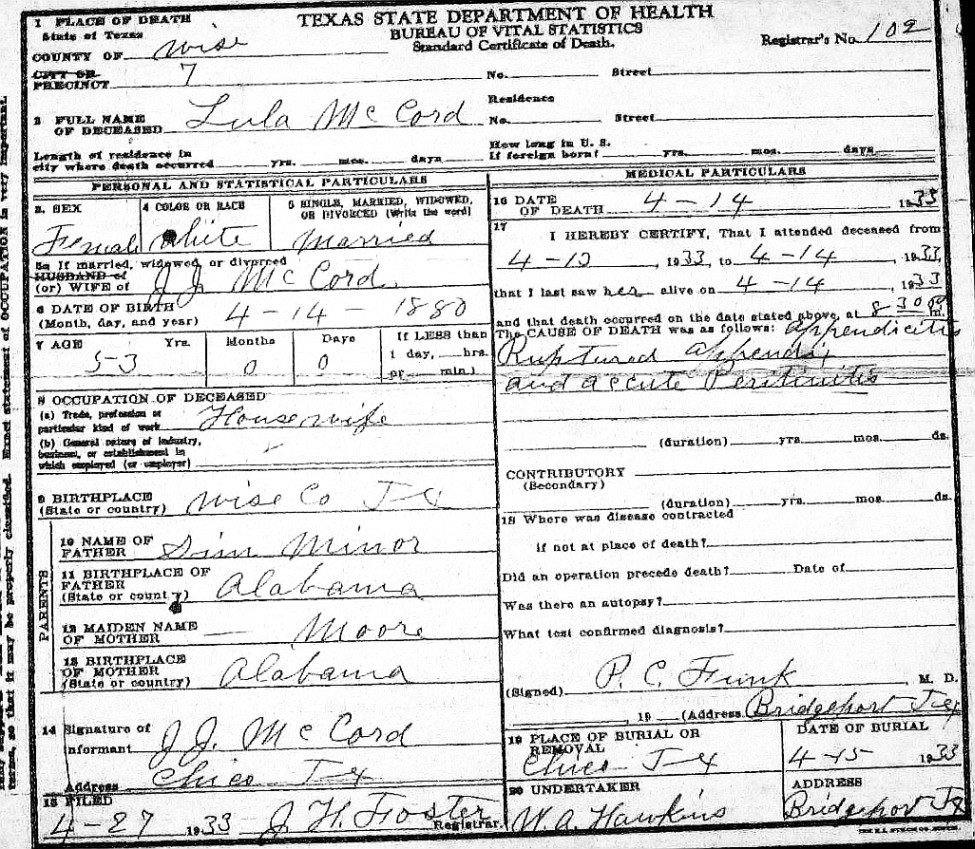 TEXAS STATE DEPARTMENT OF HEALTH
BUREAU OF VITAL STATISTICS
Standard Certificate of Death.
Registrar's No. 102
1 PLACE OF DEATH
State of Texas
COUNTY OF Wise
CITY OR
PRECINCT 7 No. Street
Residence
2 FULL NAME
OF DECEASED Lula McCord No. Street
Length of residence in
city where death occurred yrs. mos. days
How long in U. S.
if foreign born? yrs. mos. days
PERSONAL AND STATISTICAL PARTICULARS
3. SEX
Female
4 COLOR OR RACE
White
5 SINGLE, MARRIED, WIDOWED,
OR DIVORCED (Write the word)
Married
5a If married, widowed or divorced
HUSBAND of
(or) WIFE of J J. McCord.
6 DATE OF BIRTH
(Month, day, and year) 4-14-1880
7 AGE Yrs. Months Days
53 0 0
If LESS than
1 day, hrs.
or min.)
8 OCCUPATION OF DECEASED
(a) Trade, profession or
particular kind of work Housewife
(b) General nature of industry,
business, or establishment in
which employed (or employer)
9 BIRTHPLACE
(State or country) Wise Co Tex
PARENTS
10 NAME OF
FATHER Sim Minor
11 BIRTHPLACE OF
FATHER
(State or country) Alabama
12 MAIDEN NAME
OF MOTHER — Moore
13 BIRTHPLACE
OF MOTHER
(State or country) Alabama
14 Signature of
Informant J J. McCord
Address Chico Tex
15 FILED
4-27 1933 J. H. Foster Registrar.
MEDICAL PARTICULARS
16 DATE
OF DEATH 4-14 1933
17 I HEREBY CERTIFY, That I attended deceased from
, 1933, to 4-14 1933,
that I last saw her alive on 4-14 , 1933
and that death occurred on the date stated above, at
The CAUSE OF DEATH was as follows: Appendicitis
Ruptured appendix
and accute Peritinitis
(duration) yrs. mos. ds.
CONTRIBUTORY
(Secondary)
(duration) yrs. mos. ds.
18 Where was disease contracted
if not at place of death?
Did an operation precede death? Date of
Was there an autopsy?
What test confirmed diagnosis?
(Signed) P. C. Funk , M. D.
, 19 (Address Bridgeport Tex
19 PLACE OF BURIAL OR
REMOVAL
Chico Tex
DATE OF BURIAL
4-15 1933
20 UNDERTAKER
W. A. Hawkins
ADDRESS
Bridgeport Tex